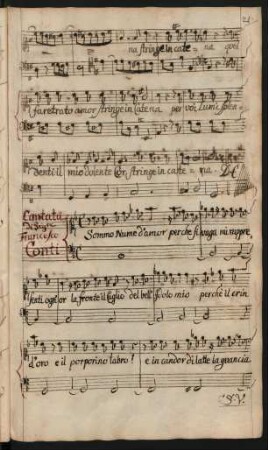 na stringe in cate = na ogni
faretrato amor stringe in catena per voi lumi
denti il mio dolente Cor stringe in cate = na.
Cantata
Del Sigre
Francesco
Conti
Sommo Nume d'amor perche si vaga mi
senti ogn'or la fronte il ciglio del bell' Idolo mio perche il crin
d'oro e il porporino labro! e in candor di latte la grancia
S. V.